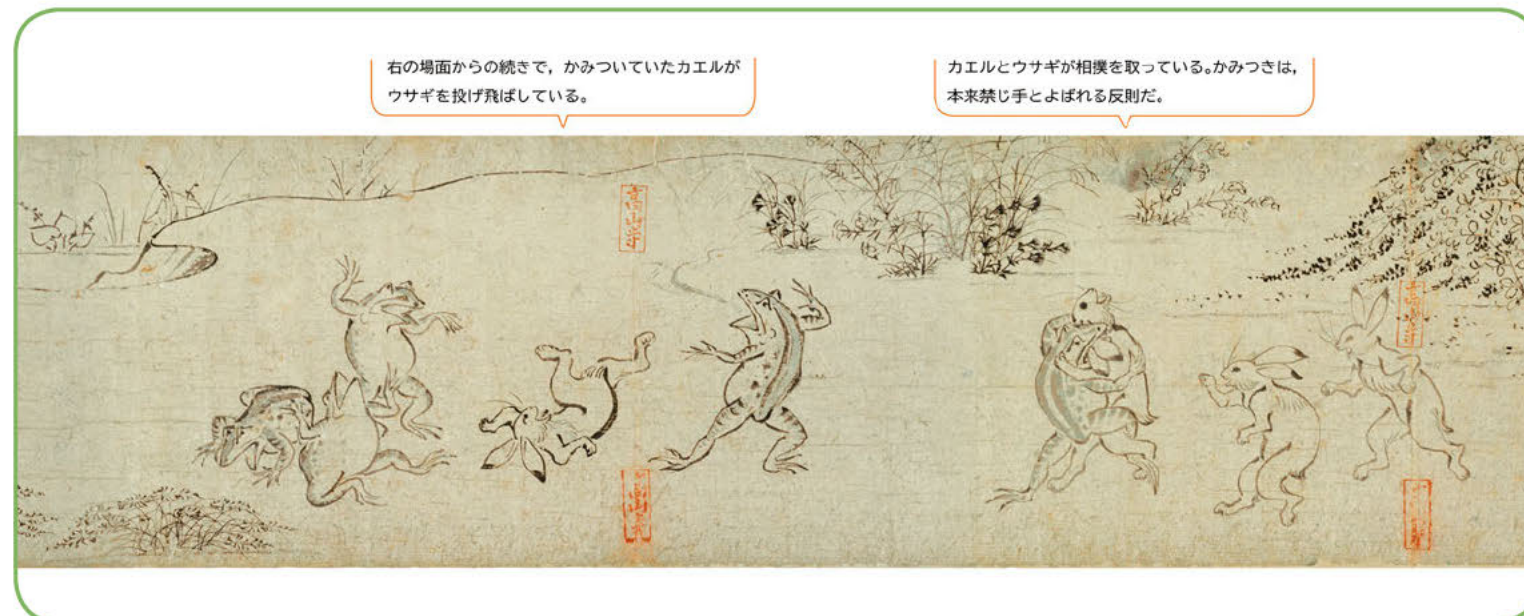 右の場面からの続きで，かみついていたカエルが
ウサギを投げ飛ばしている。
カエルとウサギが相撲を取っている。かみつきは，
本来禁じ手とよばれる反則だ。
高山寺
高山寺
高山寺